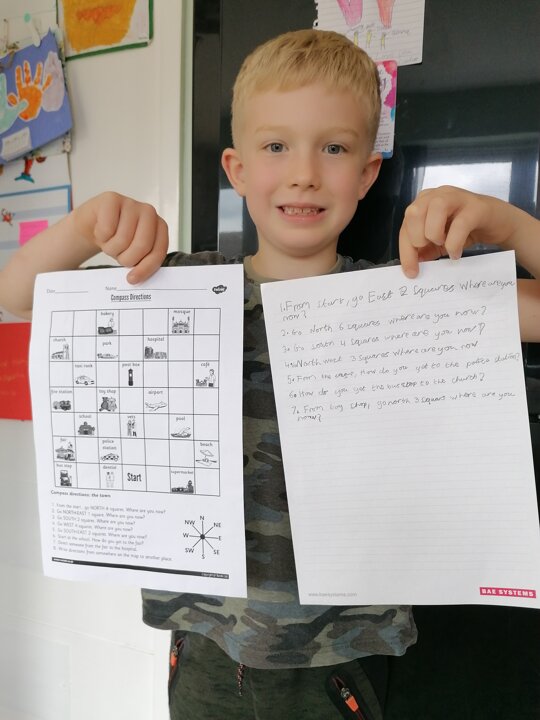 Date Name
Compass Directions
bakery mosque
church park hospital
taxi rank post box cafe
fire station toy shop airport
school vets pool
fair police station beach
bus stop dentist Start supermarket
Compass directions: the town
1. From the start, go NORTH 4 squares. Where are you now?
2. Go NORTHEAST 1 square. Where are you now?
3. Go SOUTH 2 squares. Where are you now?
4. Go WEST 4 squares. Where are you now?
5. Go SOUTHEAST 2 squares. Where are you now?
6. Start at the school. How do you get to the fair?
7. Direct someone from the fair to the hospital.
8. Write directions from somewhere on the map to another place.
N
NW NE
W E
SW SE
S
1. From start, go East 2 squares where are you
now?
2. Go North 6 squares where are you now?
3. Go south 4 squares where are you now?
4. North west 3 squares where are you now
5. From the , How do you get to the police station?
6. How do you get the bus stop to the church?
7. From toy shop, go north 3 squares where are you
now?
www.baesystems.com
BAE SYSTEMS